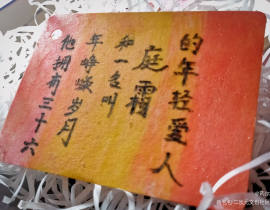 他拥有三十六
年峥嵘岁月
和一名叫
庭霜
的年轻愛人